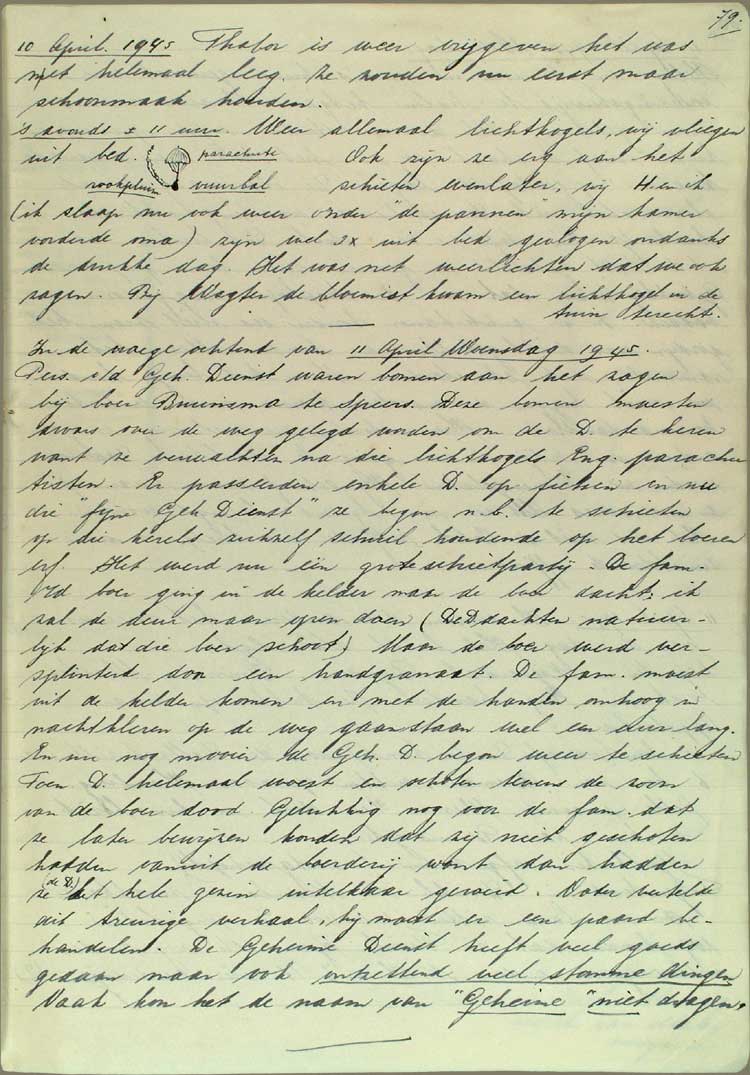 79.
10 April. 1945 Thabor is weer vrijgeven het was
niet helemaal leeg. Ze zouden nu eerst maar
schoonmaak houden.
's avonds ± 11 uur. Weer allemaal lichtkogels, wij vliegen
uit bed. parachute Ook zijn ze erg aan het
rookpluim vuurbal schieten evenlater, wij H. en ik
(ik slaap nu ook weer onder "de pannen" mijn kamer
vorderde oma) zijn wel 3x uit bed gevlogen ondanks
de drukke dag. Het was net weerlichten dat we ook
zagen. Bij Wagter de bloemist kwam een lichtkogel in de
tuin terecht.
In de vroege ochtend van 11 April Woensdag 1945.
Pers. v/d Geh. Dienst waren bomen aan het zagen
bij boer Bruinsma te Speers. Deze bomen moesten
dwars over de weg gelegd worden om de D. te keren
want ze verwachten na die lichtkogels Eng. parachu
tisten. Er passeerden enkele D. op fietsen en nu
die "fijne Geh Dienst" ze begon n.b. te schieten
op die kerels zichzelf schuil houdende op het boeren
erf. Het werd nu één grote schietpartij. De fam.
v/d boer ging in de kelder maar de boer dacht: ik
zal de deur maar open doen (De D. dachten natuur-
lijk dat die boer schoot) Maar de boer werd ver-
splinterd door een handgranaat. De fam. moest
uit de kelder komen en met de handen omhoog in
nachtkleren op de weg gaan staan wel een uur lang.
En nu nog mooier de Geh. D. begon weer te schieten
Toen D. helemaal woest en schoten tevens de zoon
van de boer dood. Gelukkig nog voor de fam. dat
ze later bewijzen konden dat zij niet geschoten
hadden vanuit de boerderij want dan hadden
ze (de D.) het hele gezin uitelkaar geroeid. Vader vertelde
dit treurige verhaal, hij moest er een paard be-
handelen. De Geheime Dienst heeft veel goeds
gedaan maar ook ontzettend veel stomme dingen
Vaak kon het de naam van "Geheime" niet dragen.